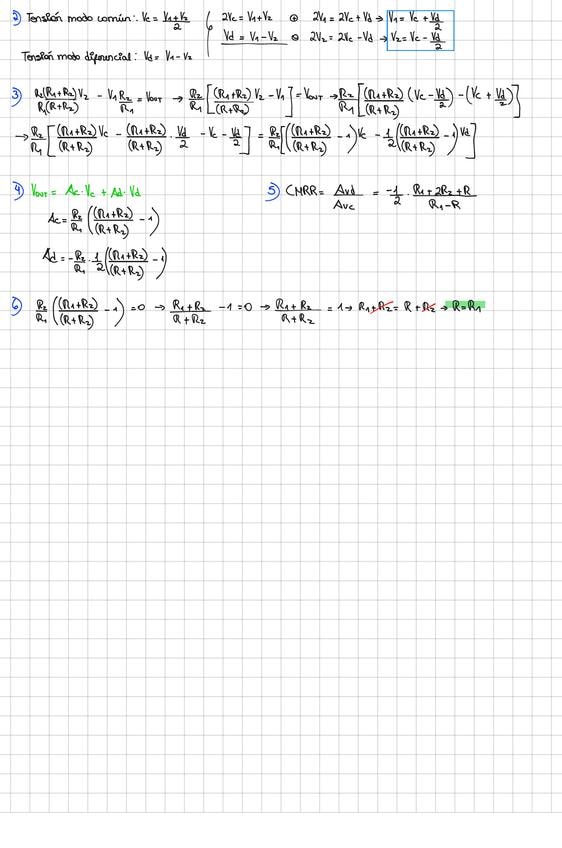 2) Tensión modo común: Vc = (V1+V2)/2 { 2Vc = V1+V2 ⊕ 2V1 = 2Vc + Vd → V1 = Vc + Vd/2
Vd = V1-V2 ⊖ 2V2 = 2Vc - Vd → V2 = Vc - Vd/2
Tensión modo diferencial: Vd = V1-V2
3) R2(R1+R2)/R1(R+R2) V2 - V1 R2/R1 = Vout → R2/R1 [(R1+R2)/(R+R2) V2 - V1] = Vout → R2/R1 [(R1+R2)/(R+R2) (Vc - Vd/2) - (Vc + Vd/2)]
→ R2/R1 [(R1+R2)/(R+R2) Vc - (R1+R2)/(R+R2) · Vd/2 - Vc - Vd/2] = R2/R1 [((R1+R2)/(R+R2) - 1) Vc - 1/2 ((R1+R2)/(R+R2) - 1) Vd]
4) Vout = Ac·Vc + Ad·Vd
Ac = R2/R1 ((R1+R2)/(R+R2) - 1)
Ad = - R2/R1 · 1/2 ((R1+R2)/(R+R2) - 1)
5) CMRR = Avd/Avc = -1/2 · (R1+2R2+R)/(R1-R)
6) R2/R1 ((R1+R2)/(R+R2) - 1) = 0 → (R1+R2)/(R+R2) - 1 = 0 → (R1+R2)/(R+R2) = 1 → R1+R2 = R+R2 → R=R1